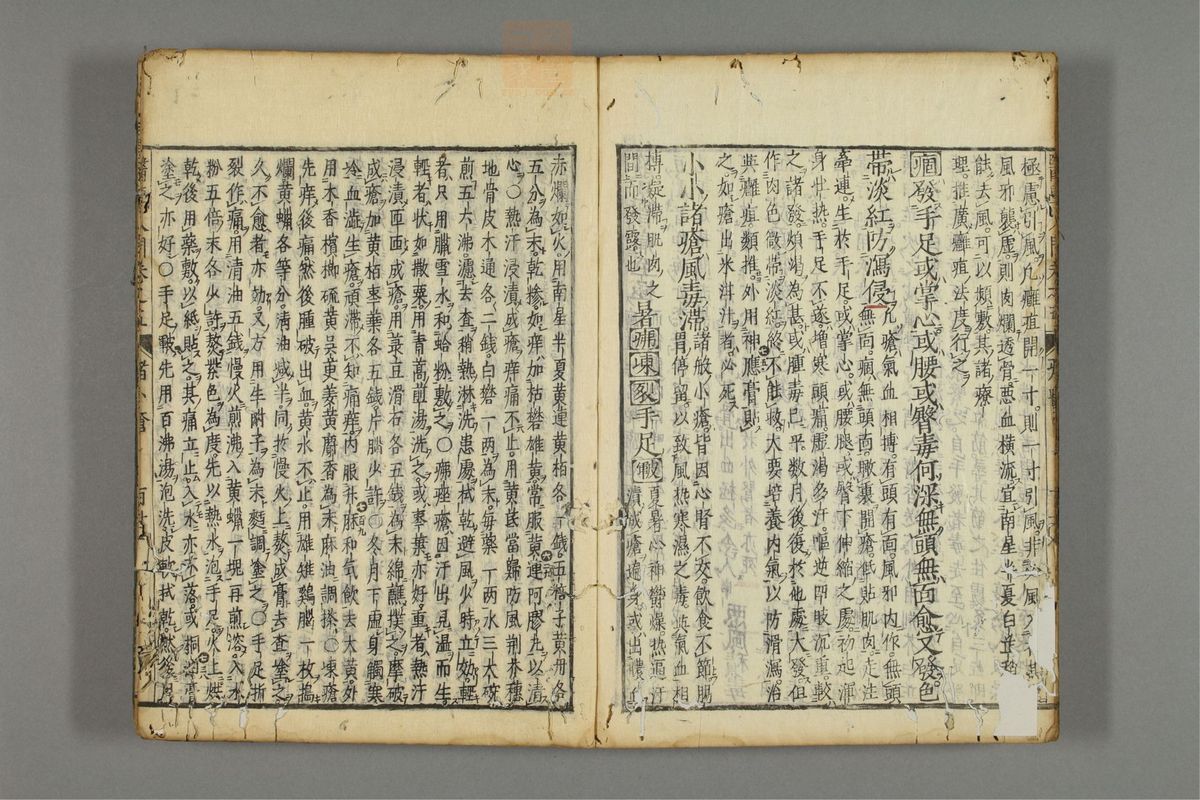 極馬引風凡癰疽開一寸則一寸引風非
風邪襲虛則肉爛透骨惡血横流宜南星半夏白
蝕去風可以類敷其諸療
壅推廣癰疽法度行之
痼發手足或掌心或腰或臀毒何深無頭無面愈又發色
帶淡紅防瀉侵凡瘡氣血相搏有頭有面風邪内作無頭
無面痼無頭面膿裏開瘡低貼肌肉走注
牽連生於手足或掌心或腰腿或臀下伸縮之處初起渾
身壮熱手足不遂増寒頭巔虛渴多汗嘔逆四肢沉重較
之諸發煩渴為甚或腫毒已平数月後復於他處大發但
作肉色微帶淡紅終不能救大要培養内氣以防滑瀉治
與癰疽類推外用神應膏貼
之如瘡出米泔汁者必死
小小諸瘡風毒滯諸般小瘡皆因心腎不交飲食不節腸
胃停留以致風熱寒濕之毒與氣血相
搏凝滯肌肉之
間而發露也
暑痱凍裂手足皸夏暑心神欝燥熱逼汗
漬成瘡遶身或出膿
赤爛如火用南星半夏黄連黄栢各一錢五棓子黄丹各
五分為末乾摻如痒加枯礬雄黄常服黄連阿膠丸以清
心〇熱汗浸漬成瘡痒痛不止用黄芪當歸防風荆芥穗
地骨皮木通各二錢白礬一两為末毎藥一两水三大碗
煎五六沸濾去査稍熱淋洗患處拭乾避風少時立効輕
者只用臘雪水和蛤粉敷之〇痱痤瘡因汗出見温而生
輕者状如撒粟用青蒿煎湯洗之或棗葉亦好重者熱汗
浸漬匝匝成瘡用菉豆滑石各五錢為末綿蘸撲之摩破
成瘡加黄栢棗葉各五錢片腦少許〇冬月下虛身觸寒
冷血澁生瘡頑滯不知痛痒内服升麻和氣飲去大黄外
用木香檳榔硫黄吴茱姜黄麝香為末麻油調搽〇凍瘡
先痒後痛然後腫破出血黄水不止用雄雉鷄腦一枚搗
爛黄蠟各等分清油減半同於慢火上熬成膏去査塗之
久不愈者亦効又方用生附子為末麵調塗之〇手足折
裂作痛用清油五錢慢火煎沸入黄蠟一塊再煎溶入水
粉五倍末各少許熬紫色為度先以熱水泡手足火上烘
乾後用藥敷以紙貼之其痛立止入水亦不落或搗
塗之亦好〇手足皸先用百沸湯泡洗皮軟拭乾然後